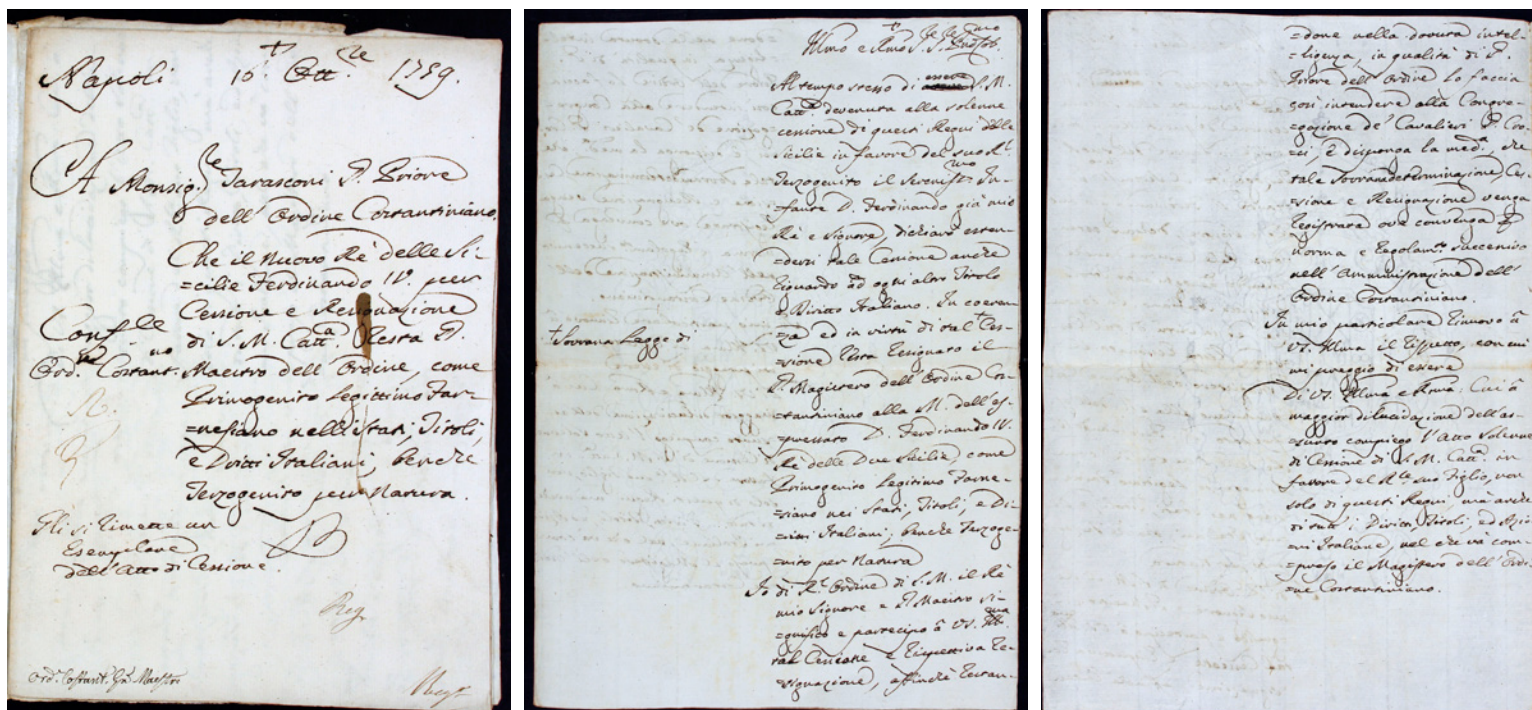 Napoli 16. Ott.re 1759.
A Monsig.re Tarasconi P. Priore
dell' Ordine Costantiniano.
Che il Nuovo Rè delle Si-
=cilie Ferdinando IV. per
Cessione e Resignazione
di S. M. Catt.a Resta P.
Maestro dell' Ordine, come
Primogenito legittimo Far-
=nesiano nelli Stati, Titoli,
e Dritti Italiani, benche
Terzogenito per Natura.
Conf.le
Ord.ne Costant.no
Gli si rimette un
Esemplare
dell' Atto di Cessione.
Reg.
Ord.e Costant. Gn. Maestri
Illmo e Rmo S.
Al tempo stesso di essere S. M.
Catt.a devenuta alla solenne
cessione di questi Regni delle
Sicilie in favore del suo R.l
Terzogenito il Serenis.mo In-
=fante D. Ferdinando già mio
Rè e Signore, dichiarò esten-
=dersi tale Cessione anche
riguardo ad ogni altro Titolo
e Diritto Italiano. In coeren-
=za ed in virtù di tal + Ces-
+ Sovrana Legge di
=sione resta resignato il
P. Magistero dell' Ordine Cos-
=tantiniano alla M. dell' es-
=pressato D. Ferdinando IV.
Rè delle Due Sicilie, come
Primogenito Legitimo Farne-
=siano nei Stati, Titoli, e Di-
=ritti Italiani, benche Terzoge-
=nito per Natura
Io di R.l Ordine di S. M. il Rè
mio Signore e P. Maestro si-
=gnifico e partecipo à VS. Ill.ma
tal Cessione e rispettiva Re-
=signazione, affinchè restan-
=done nella dovuta intel-
=ligenza, in qualità di P.
Priore dell' Ordine lo faccia
così intendere alla Congre-
=gazione de' Cavalieri P. Cro-
=ci, e disponga la med.a, che
tale Sovrana determinazione, Ces-
=sione e Resignazione venga
registrata ove convenga p
norma e regolam.to successivo
nell' Amministrazione dell'
Ordine Costantiniano.
In mio particolare rinnovo à
VS. Illma il rispetto, con cui
mi preggio di essere
Di VS. Illma e Rma. Cui à
maggior dilucidazione dell' as-
=sunto compiego l' Atto Solenne
di Cessione di S. M. Catt.a in
favore del R.le suo Figlio, non
solo di questi Regni, mà anche
di tutt' i Diritti, Titoli, ed Azio-
=ni Italiane, nel che và com-
=preso il Magistero dell' Ordi-
=ne Costantiniano.